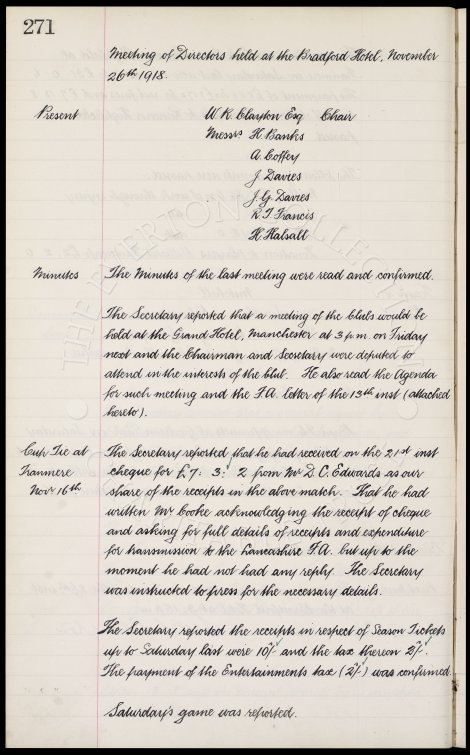 271
Meeting of Directors held at the Bradford Hotel, November
26th 1918.
Present W. R. Clayton Esq Chair
Messrs H. Banks
A. Coffey
J. Davies
J. G. Davies
R. T. Francis
H. Halsall
Minutes The Minutes of the last meeting were read and confirmed.
The Secretary reported that a meeting of the Clubs would be
held at the Grand Hotel, Manchester at 3 p.m. on Friday
next and the Chairman and Secretary were deputed to
attend in the interests of the Club. He also read the Agenda
for such meeting and the F.A. letter of the 13th inst (attached
hereto).
Cup Tie at The Secretary reported that he had received on the 21st inst
Tranmere cheque for £7: 3: 2 from Mr D. C. Edwards as our
Nov 16th share of the receipts in the above match. That he had
written Mr Cooke acknowledging the receipt of cheque
and asking for full details of receipts and expenditure
for transmission to the Lancashire F.A. but up to the
moment he had not had any reply. The Secretary
was instructed to press for the necessary details.
The Secretary reported the receipts in respect of Season Tickets
up to Saturday last were 10/- and the tax thereon 2/-.
The payment of the Entertainments tax (2/-) was confirmed.
Saturday's game was reported.
THE EVERTON COLLECTION